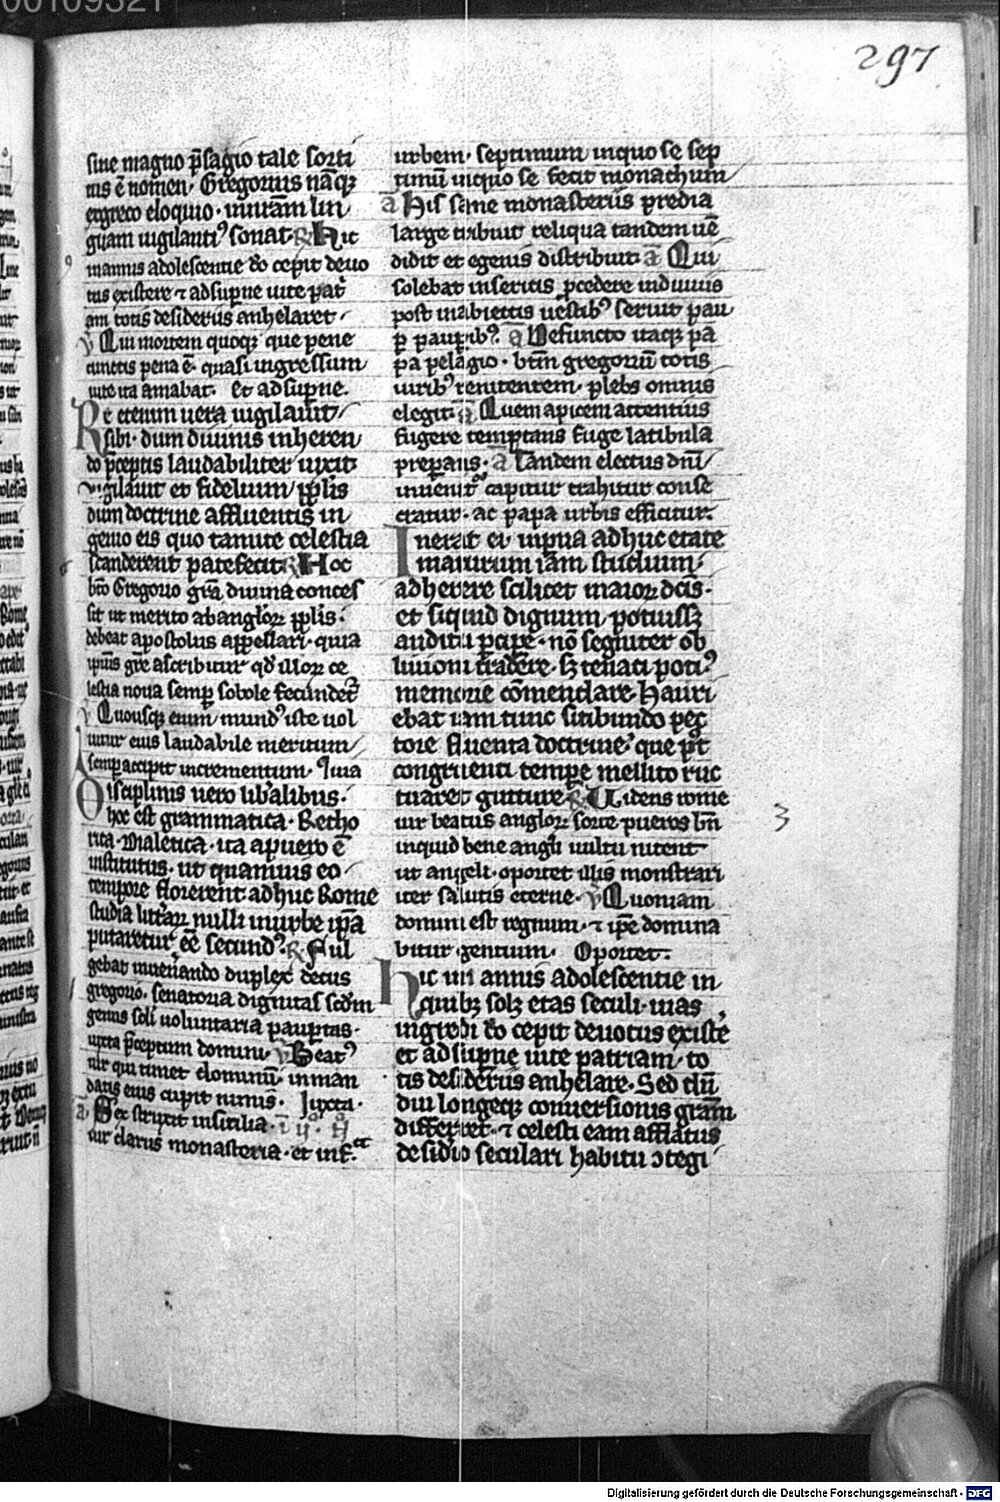 00109321
297
sine magno p̄sagio tale sorti
tus ē nomen. Gregorius nāq;
ex greco eloquio. in nr̄am lin
guam uigilantiꝰ sonat. R Hic
in annis adolescentie do cepit deuo
tus existere ⁊ ad supne uite pat͛
am totis desideriis anhelaret.
V Qui mortem quoq; que pene
cunctis pena ē. quasi ingressum
uite ita amabat. Et ad supne.
Re etenim uera uigilauit
sibi. dum diuinis inheren
do p̄ceptis laudabiliter uixit
Vigilauit et fidelium pp̄lis
dum doctrine affluentis in
genio eis quo tanute celestia
scanderent patefecit R Hoc
bt̄o Gregorio grā diuina conces
sit ut merito ab angloꝝ pp̄lis.
debeat apostolus appellari. quia
ipsius gr̄e ascribitur qd̄ illoꝝ ce
lestia noua semp sobole fecundet͛
V Quousq; enim mundꝰ iste uol
uitur eius laudabile meritum
semp accipit incrementum. Quia
Disciplinis uero lib̄alibus.
hoc est grammatica. Retho
rica. Dialetica. ita a puero ē
institutus. ut quamuis eo
tempore florerent adhuc Rome
studia litt̄aꝝ nulli in urbe ip̄a
putaretur ēē secundꝰ. R Ful
gebat in uen̄ando duplex decus
gregorio. senatoria dignitas scd̄m
genus soli uoluntaria pauptas.
iuxta p̄ceptum domini. V Beatꝰ
uir qui timet dominū in man
datis eius cupit nimis. Iuxta.
a Sex struxit in sicilia.
uir clarus monasteria. et inf.
urbem. septimum in quo se sep
timū in quo se fecit monachum
a His sane monasteriis predia
large tribuit reliqua tandem uē
didit et egenis distribuit. a Qui
solebat in sericis p̄cedere induuiis
post in abiectis uestibꝰ seruit pau
p paupibꝰ. a Defuncto itaq; pa
pa pelagio. bt̄m gregoriū totis
uiribꝰ renitentem. plebs omnis
elegit. a Quem apicem attentius
fugere temptans fuge latibula
preparans. a Tandem electus dn̄i
inuenitꝰ capitur trahitur conse
cratur. ac papa urbis efficitur.
Inerat ei in pua adhuc etate
maturum iam studium.
adherere scilicet maioꝝ dc̄is.
et siquid dignum potuissꝫ
auditu pcipe. nō segniter ob
liuioni tradere. sꝫ tenaci potiꝰ
memorie cōmendare. Hauri
ebat iam tunc sitibundo pec
tore fluenta doctrine. que p̄t
congruenti tempe mellito ruc
tuaret gutture. R Videns rome
uir beatus angloꝝ forte pueros bn̄
inquid bene angli uultu nitent
ut angeli. oportet illis monstrari
iter salutis eterne. V Quoniam
domini est regnum. ⁊ ip̄e domina
bitur gentium. Oportet.
3
Hic in annis adolescentie in
quibꝫ solꝫ etas seculi. uias
ingredi do cepit deuotus existe
et ad supne uite patriam. to
tis desideriis anhelare. Sed dū
diu longeq; conuersionis grām
differret. ⁊ celesti eam afflatus
desidio seculari habitu ↄtegi
Digitalisierung gefördert durch die Deutsche Forschungsgemeinschaft - DFG